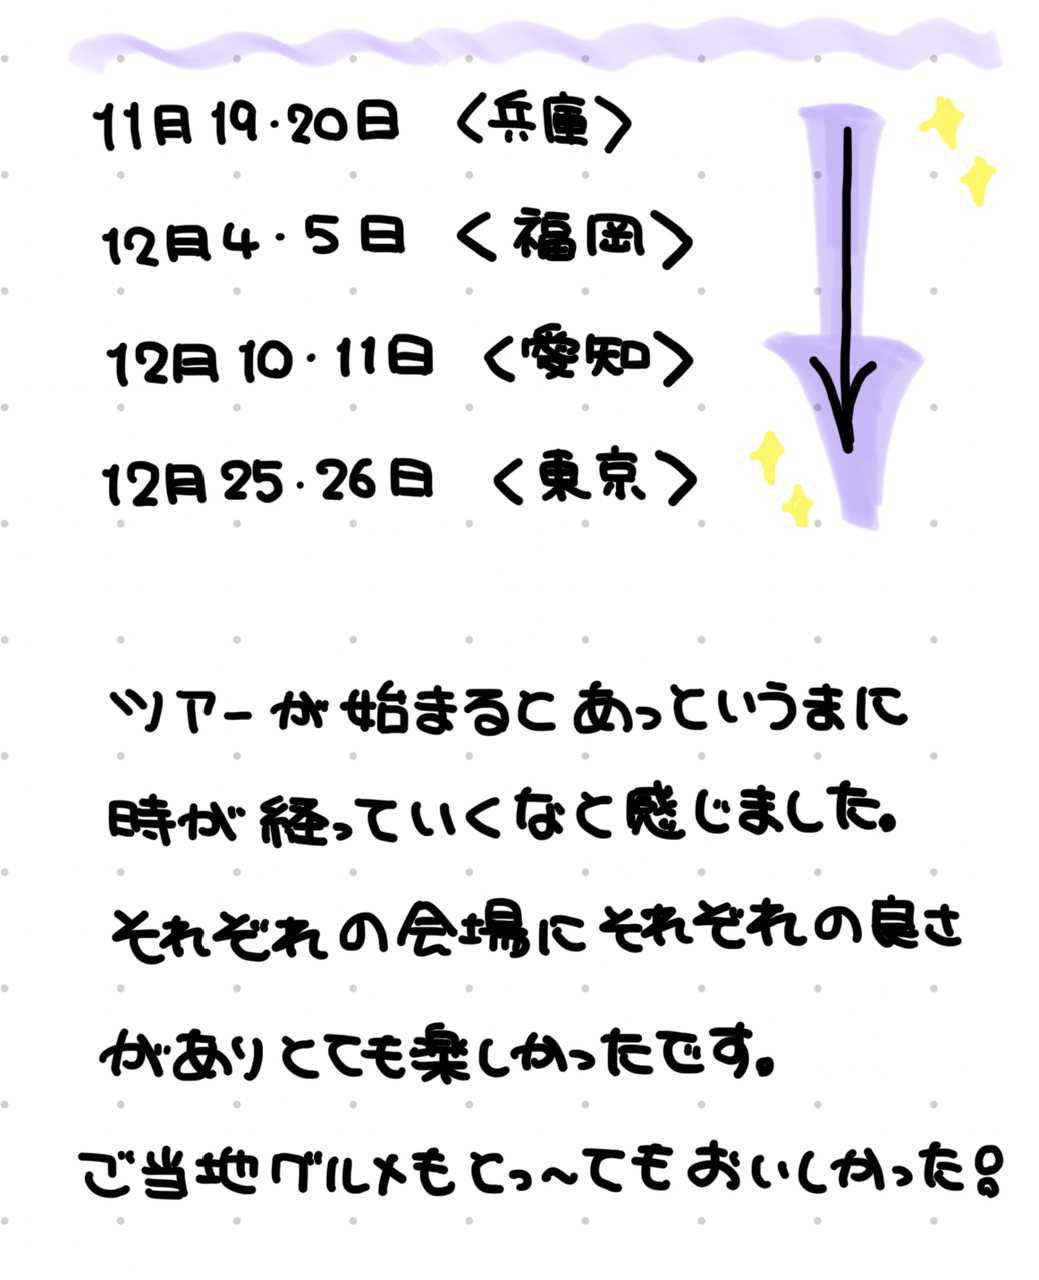 11月19・20日 〈兵庫〉
12月4・5日 〈福岡〉
12月10・11日 〈愛知〉
12月25・26日 〈東京〉
ツアーが始まるとあっというまに
時が経っていくなと感じました。
それぞれの会場にそれぞれの良さ
がありとても楽しかったです。
ご当地グルメもとっ〜てもおいしかった!